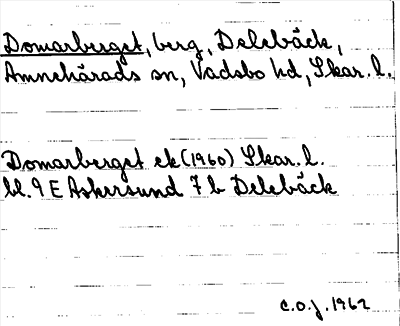 Domarberget, berg, Delebäck,
Amnehärads sn, Vadsbo hd, Skar. l.
Domarberget ek (1960) Skar. l.
bl. 9 E Askersund 7 b Delebäck
C.O.J. 1962